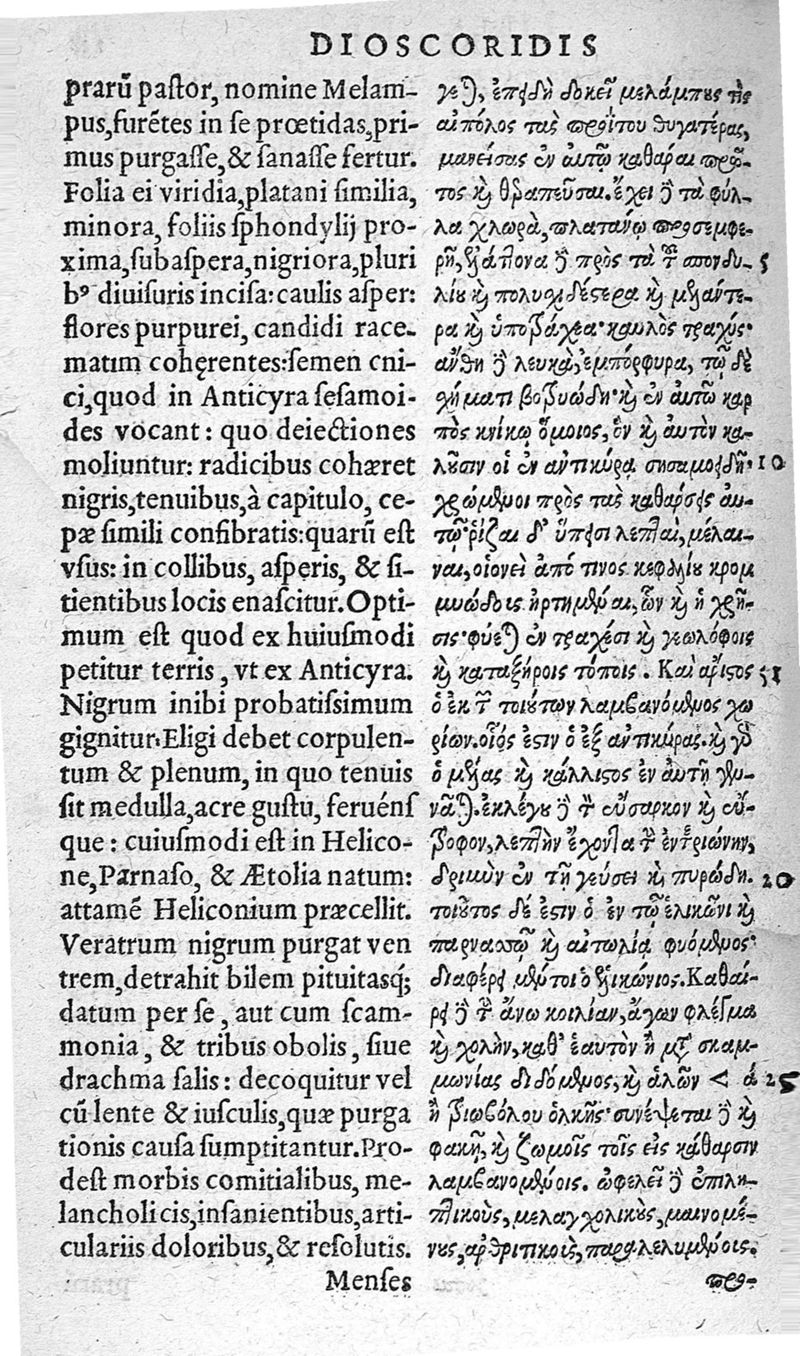 DIOSCORIDIS
prarū pastor, nomine Melam-
pus,furētes in se prœtidas,pri-
mus purgasse,& sanasse fertur.
Folia ei viridia,platani similia,
minora, foliis sphondylij pro-
xima,subaspera,nigriora,pluri
bꝰ diuisuris incisa:caulis asper:
flores purpurei, candidi race-
matim cohęrentes:semen cni-
ci,quod in Anticyra sesamoi-
des vocant: quo deiectiones
moliuntur: radicibus cohæret
nigris,tenuibus,à capitulo, ce-
pæ simili confibratis:quarū est
vsus: in collibus, asperis, & si-
tientibus locis enascitur.Opti-
mum est quod ex huiusmodi
petitur terris, vt ex Anticyra.
Nigrum inibi probatissimum
gignitur.Eligi debet corpulen-
tum & plenum, in quo tenuis
sit medulla,acre gustu, feruéns
que: cuiusmodi est in Helico-
ne,Parnaso, & Ætolia natum:
attamē Heliconium præcellit.
Veratrum nigrum purgat ven
trem,detrahit bilem pituitasq;
datum per se, aut cum scam-
monia, & tribus obolis, siue
drachma salis: decoquitur vel
cū lente & iusculis,quæ purga
tionis causa sumptitantur.Pro-
dest morbis comitialibus, me-
lancholicis,insanientibus,arti-
culariis doloribus,& resolutis.
Menses
γεται, ἐπειδὴ δοκεῖ μελάμπους τὶς
αἰπόλος τὰς προίτου θυγατέρας,
μανείσας ἐν αὐτῷ καθᾶραι πρῶ-
τος καὶ θεραπεῦσαι. ἔχει δὲ τὰ φύλ-
λα χλωρὰ, πλατάνῳ προσεμφε-
ρῆ, ἐλάττονα δὲ πρὸς τὰ τοῦ σπονδυ- 5
λίου καὶ πολυσχιδέστερα καὶ μελάντε-
ρα καὶ ὑποτράχεα· καυλὸς τραχύς·
ἄνθη δὲ λευκὰ, ἐμπόρφυρα, τῷ δὲ
χήματι βοτρυώδη· καὶ ἐν αὐτῷ καρ
πὸς κνίκῳ ὅμοιος, ὃν καὶ αὐτὸν κα-
λοῦσιν οἱ ἐν ἀντικύρᾳ σησαμοειδῆ· 10
χρώμενοι πρὸς τὰς καθάρσεις αὐ-
τῷ· ῥίζαι δ' ὕπεισι λεπταὶ, μέλαι-
ναι, οἱονεὶ ἀπό τινος κεφαλίου κρομ
μυώδοις ἠρτημέναι, ὧν καὶ ἡ χρῆ-
σις· φύεται ἐν τραχέσι καὶ γεωλόφοις
καὶ καταξήροις τόποις. Καὶ ἄριστος 15
ὁ ἐκ τῶν τοιούτων λαμβανόμενος χω
ρίων. οἷός ἐστιν ὁ ἐξ ἀντικύρας. καὶ γὰρ
ὁ μέλας καὶ κάλλιστος ἐν αὐτῇ γεν-
νᾶται. ἐκλέγου δὲ τὸν εὔσαρκον καὶ εὔ-
τροφον, λεπτὴν ἔχοντα τὴν ἐντεριώνην,
δριμὺν ἐν τῇ γεύσει καὶ πυρώδη. 20
τοιοῦτος δέ ἐστιν ὁ ἐν τῷ ἑλικῶνι καὶ
παρνασσῷ καὶ αἰτωλίᾳ φυόμενος·
διαφέρει μέντοι ὁ ἑλικώνιος. Καθαί-
ρει δὲ τὴν ἄνω κοιλίαν, ἄγων φλέγμα
καὶ χολὴν, καθ' ἑαυτὸν ἢ μετὰ σκαμ-
μωνίας διδόμενος, καὶ ἁλῶν < ά 25
ἢ τριωβόλου ὁλκῆς· συνέψεται δὲ καὶ
φακῇ, καὶ ζωμοῖς τοῖς εἰς κάθαρσιν
λαμβανομένοις. ὠφελεῖ δὲ ἐπιλη-
πτικοὺς, μελαγχολικοὺς, μαινομέ-
νους, ἀρθριτικοὺς, παραλελυμένοις.
προ-